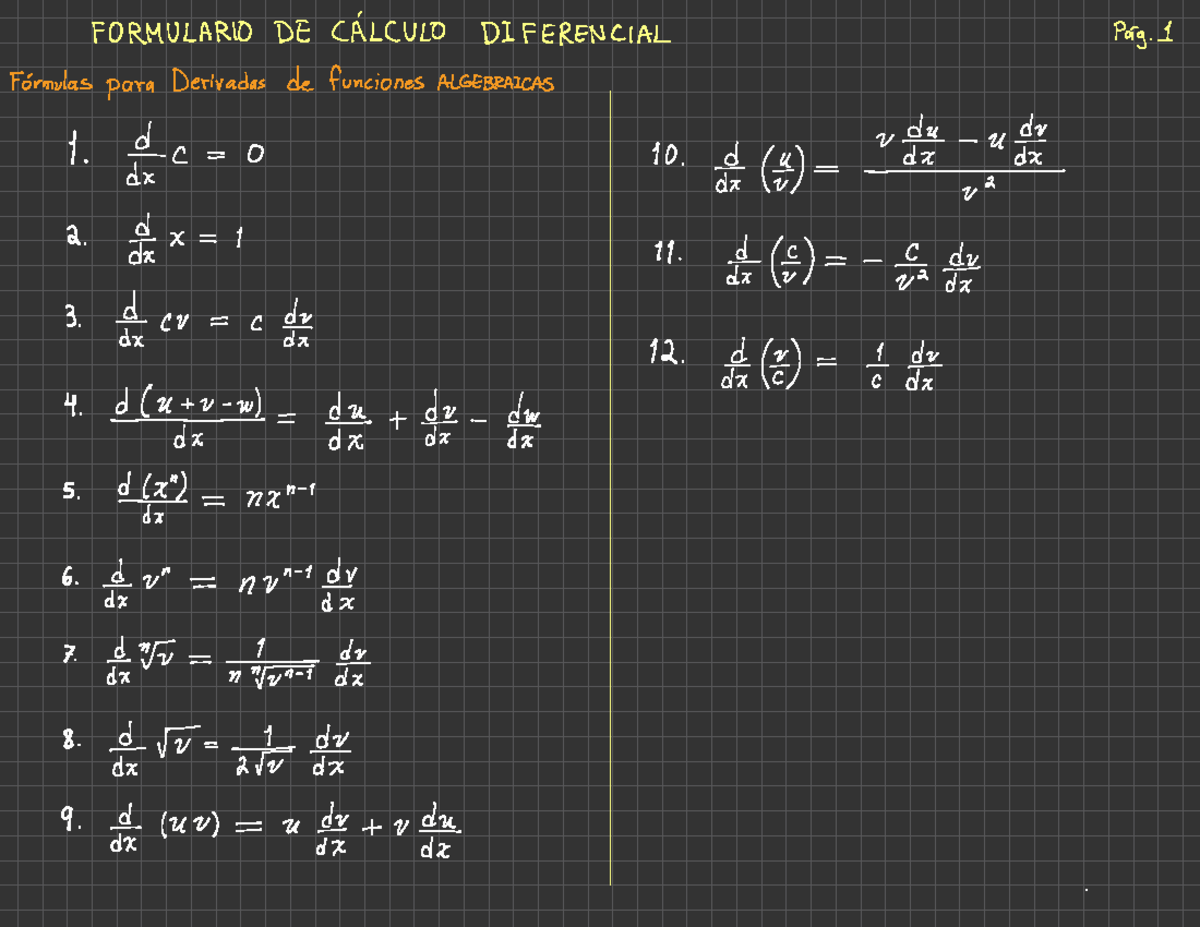 FORMULARIO DE CÁLCULO DIFERENCIAL
Pág. 1
Fórmulas para Derivadas de funciones ALGEBRAICAS
1. \frac{d}{dx} c = 0
2. \frac{d}{dx} x = 1
3. \frac{d}{dx} cv = c \frac{dv}{dx}
4. \frac{d(u+v-w)}{dx} = \frac{du}{dx} + \frac{dv}{dx} - \frac{dw}{dx}
5. \frac{d(x^n)}{dx} = nx^{n-1}
6. \frac{d}{dx} v^n = nv^{n-1} \frac{dv}{dx}
7. \frac{d}{dx} \sqrt[n]{v} = \frac{1}{n \sqrt[n]{v^{n-1}}} \frac{dv}{dx}
8. \frac{d}{dx} \sqrt{v} = \frac{1}{2\sqrt{v}} \frac{dv}{dx}
9. \frac{d}{dx} (uv) = u \frac{dv}{dx} + v \frac{du}{dx}
10. \frac{d}{dx} (\frac{u}{v}) = \frac{v \frac{du}{dx} - u \frac{dv}{dx}}{v^2}
11. \frac{d}{dx} (\frac{c}{v}) = - \frac{c}{v^2} \frac{dv}{dx}
12. \frac{d}{dx} (\frac{v}{c}) = \frac{1}{c} \frac{dv}{dx}